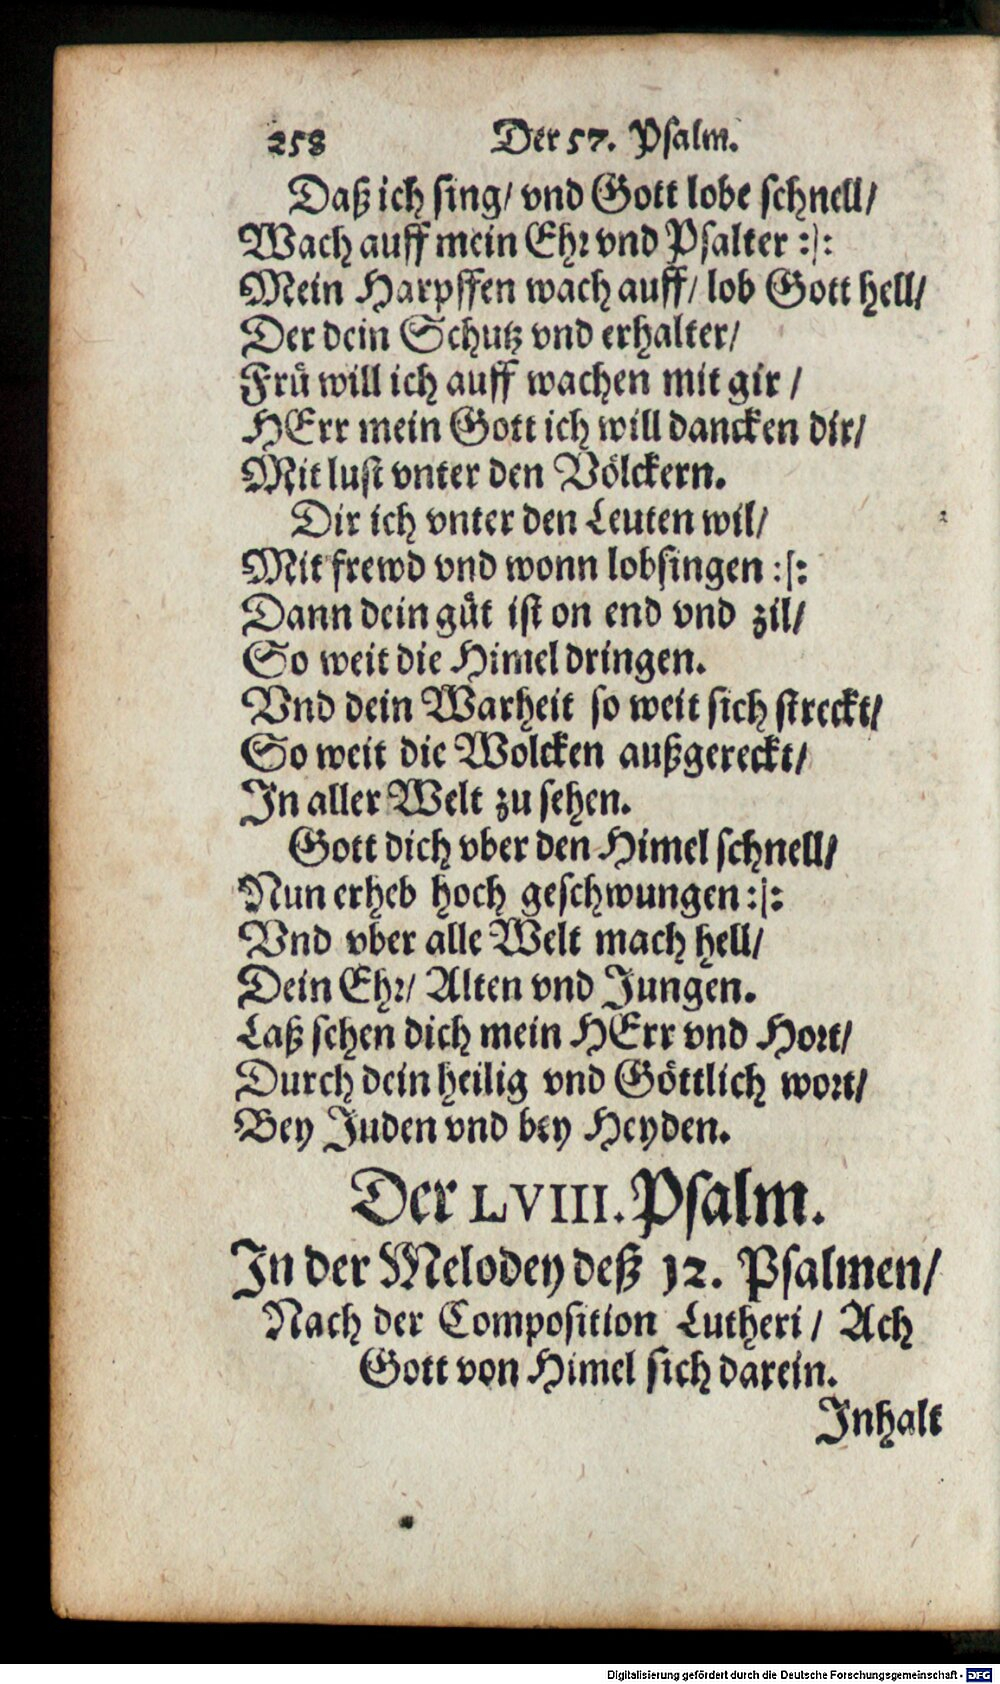 258 Der 57. Psalm.
Daß ich sing/ vnd Gott lobe schnell/
Wach auff mein Ehr vnd Psalter :|:
Mein Harpffen wach auff/ lob Gott hell/
Der dein Schutz vnd erhalter/
Frü will ich auff wachen mit gir /
HErr mein Gott ich will dancken dir/
Mit lust vnter den Völckern.
Dir ich vnter den Leuten wil/
Mit frewd vnd wonn lobsingen :|:
Dann dein güt ist on end vnd zil/
So weit die Himel dringen.
Vnd dein Warheit so weit sich streckt/
So weit die Wolcken außgereckt/
In aller Welt zu sehen.
Gott dich vber den Himel schnell/
Nun erheb hoch geschwungen :|:
Vnd vber alle Welt mach hell/
Dein Ehr/ Alten vnd Jungen.
Laß sehen dich mein HErr vnd Hort/
Durch dein heilig vnd Göttlich wort/
Bey Juden vnd bey Heyden.
Der LVIII. Psalm.
In der Melodey deß 12. Psalmen/
Nach der Composition Lutheri / Ach
Gott von Himel sich darein.
Inhalt
Digitalisierung gefördert durch die Deutsche Forschungsgemeinschaft - DFG